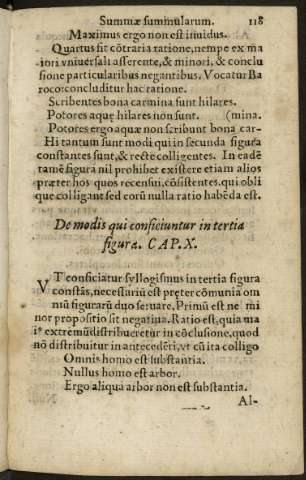 Summæ summularum. 118
Maximus ergo non est inuidus.
Quartus sit cōtraria ratione, nempe ex ma
iori vniuersali asserente, & minori, & conclu
sione particularibus negantibus. Vocatur Ba
roco: conclu ditur hac ratione.
Scribentes bona carmina sunt hilares.
Potores aquę hilares non sunt. (mina.
Potores ergo aquæ non scribunt bona car-
Hi tantum sunt modi qui in secunda figura
constantes sunt, & rectè colligentes. In eadē
tamē figura nil prohibet existere etiam alios
præter hos quos recensui, cōsistentes. qui obli
que colligant sed eorū nulla ratio habēda est.
De modis qui conficiuntur in tertia
figura. CAP. X.
VT conficiatur syllogismus in tertia figura
constās, necessariū est pręter cōmunia om
niū figurarū duo seruare, Primū est ne mi
nor propositio sit negatiua. Ratio est, quia ma
ioꝰ extremū distribueretur in cōclusione, quod
nō distribuitur in antecedēti, vt cū ita colligo
Omnis homo est substantia.
Nullus homo est arbor.
Ergo aliqua arbor non est substantia.
Al-